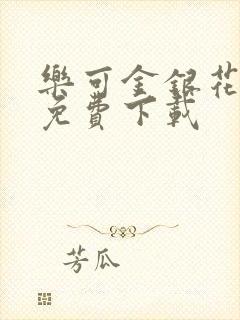 樂可金銀花
免費下載
芳瓜